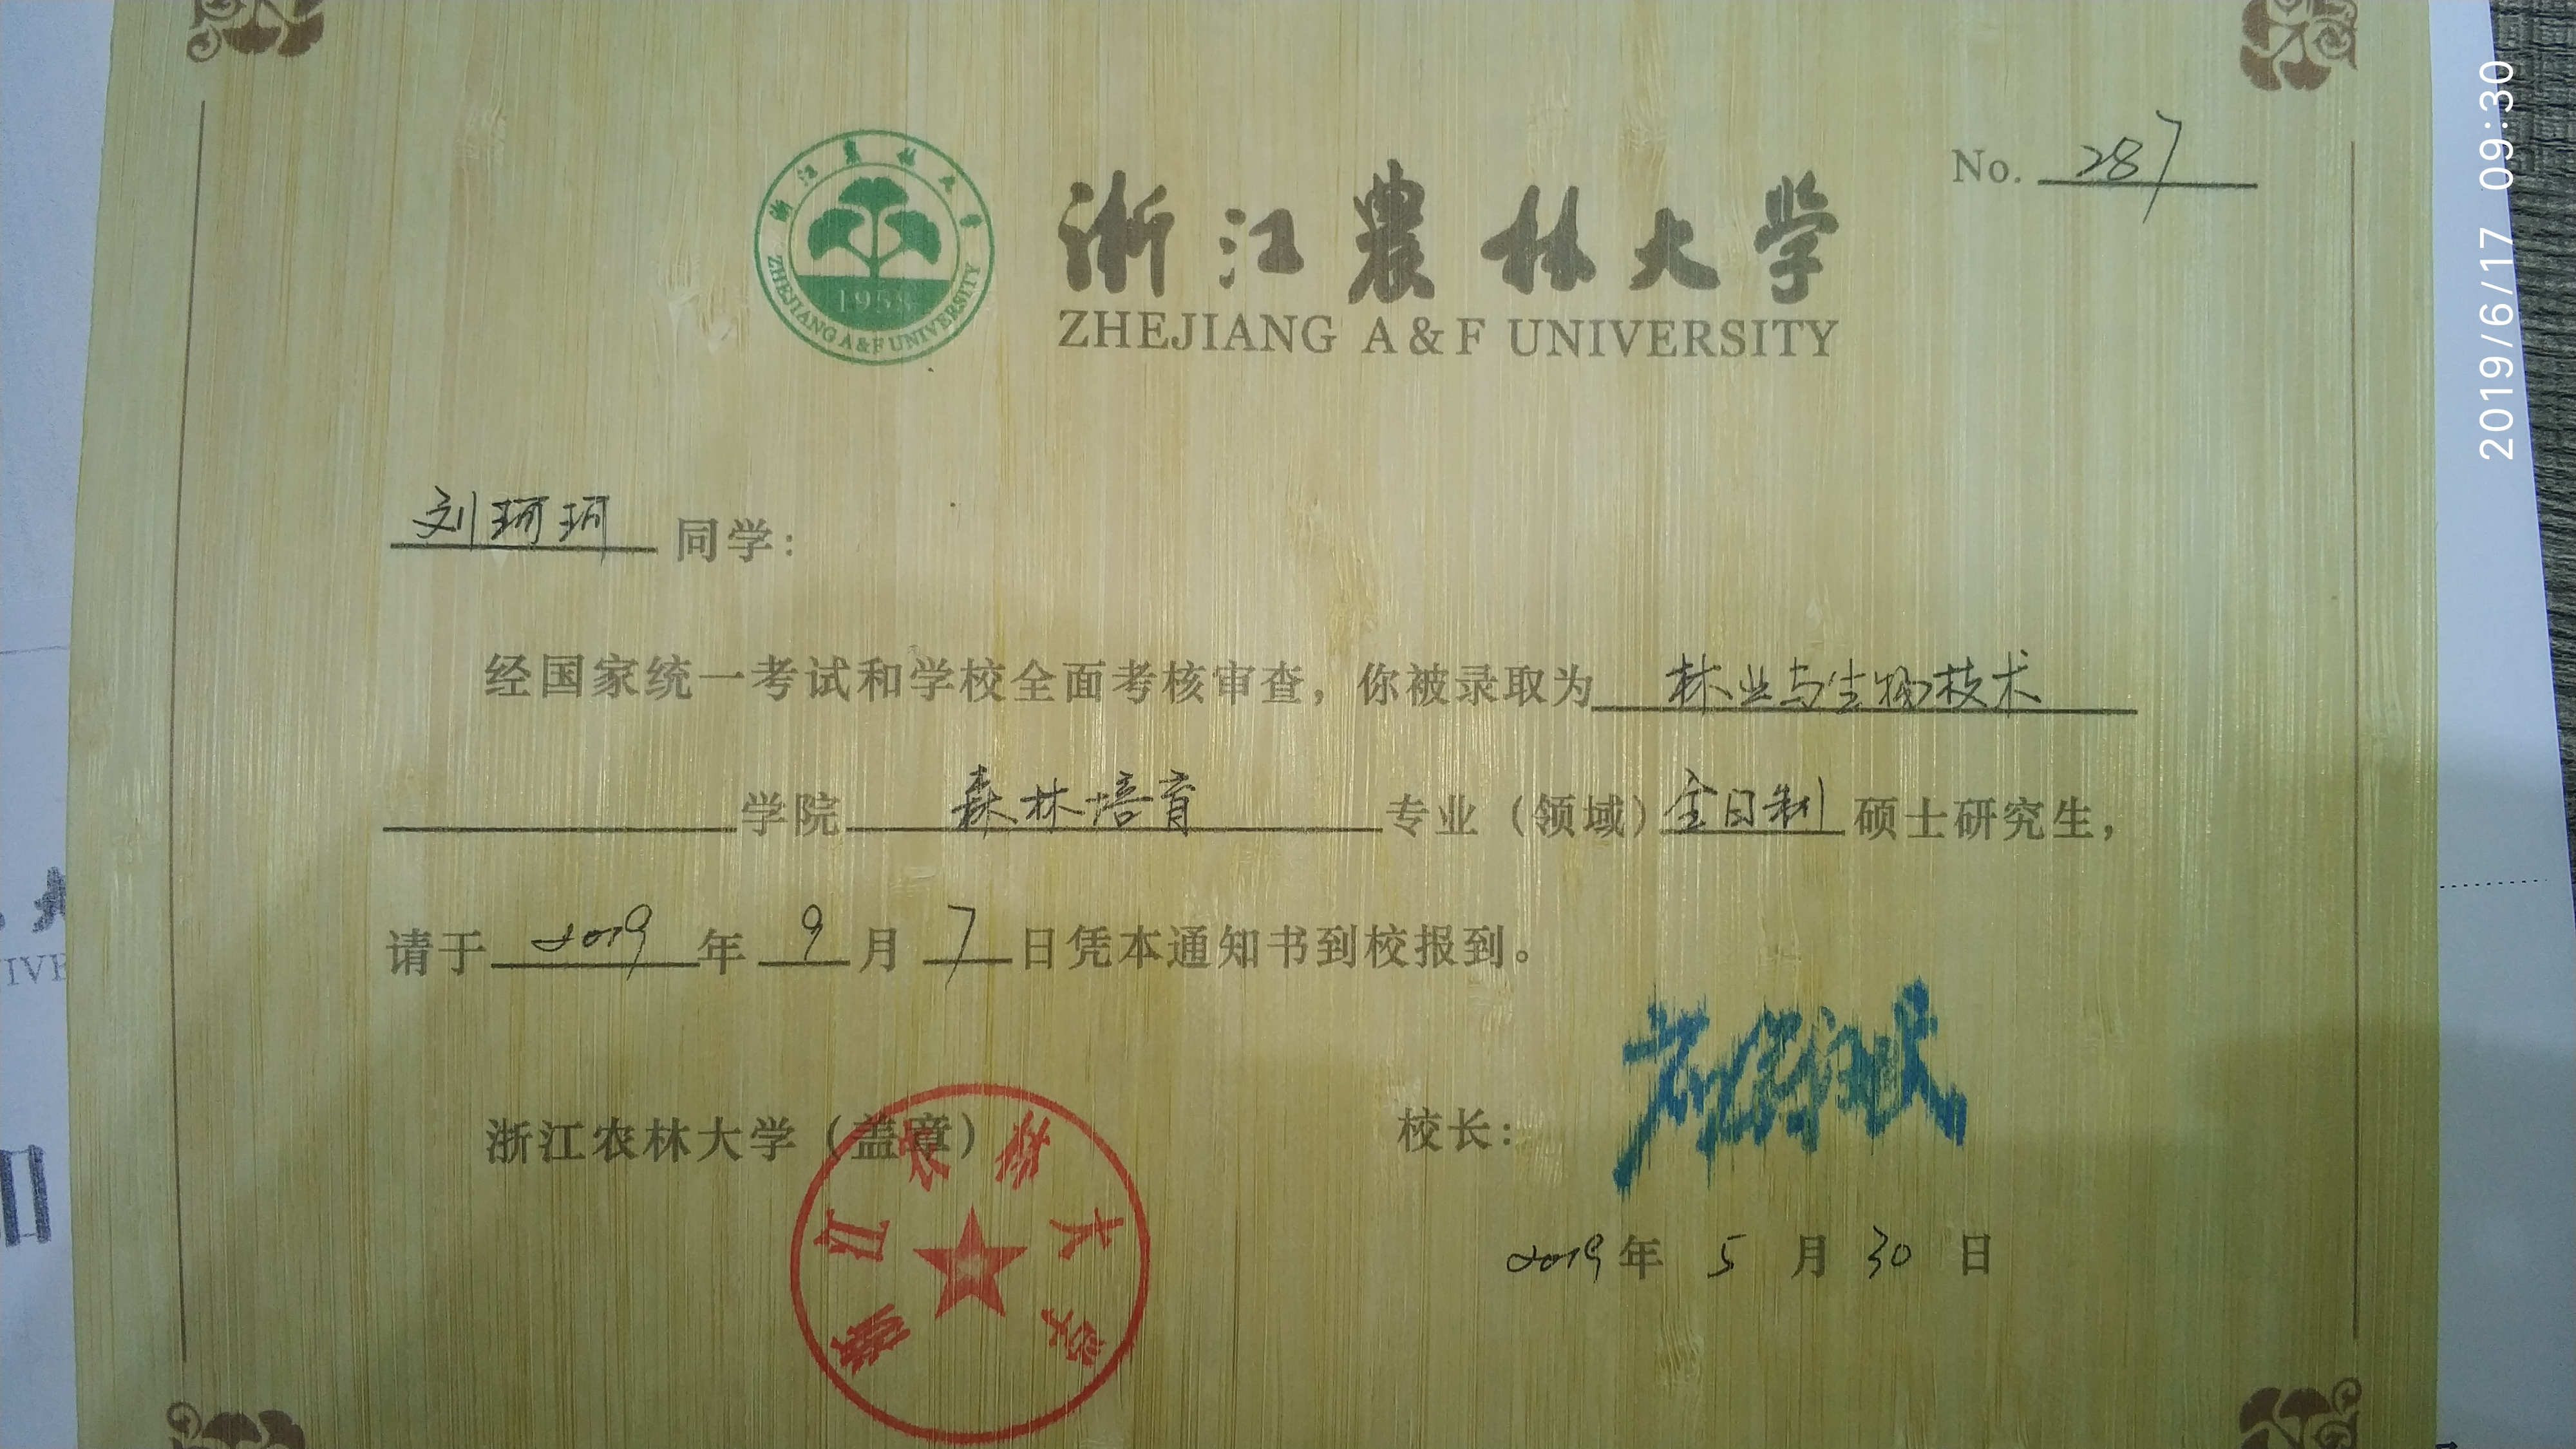 No. 287
浙江農林大学
ZHEJIANG A&F UNIVERSITY
浙江農林大学
1958
ZHEJIANG A&F UNIVERSITY
刘珂珂 同学：
经国家统一考试和学校全面考核审查，你被录取为 林业与生物技术
学院 森林培育 专业（领域）全日制 硕士研究生，
请于 2019 年 9 月 7 日凭本通知书到校报到。
浙江农林大学（盖章） 校长：
浙江农林大学
2019 年 5 月 30 日
2019/6/17 09:30
IVE